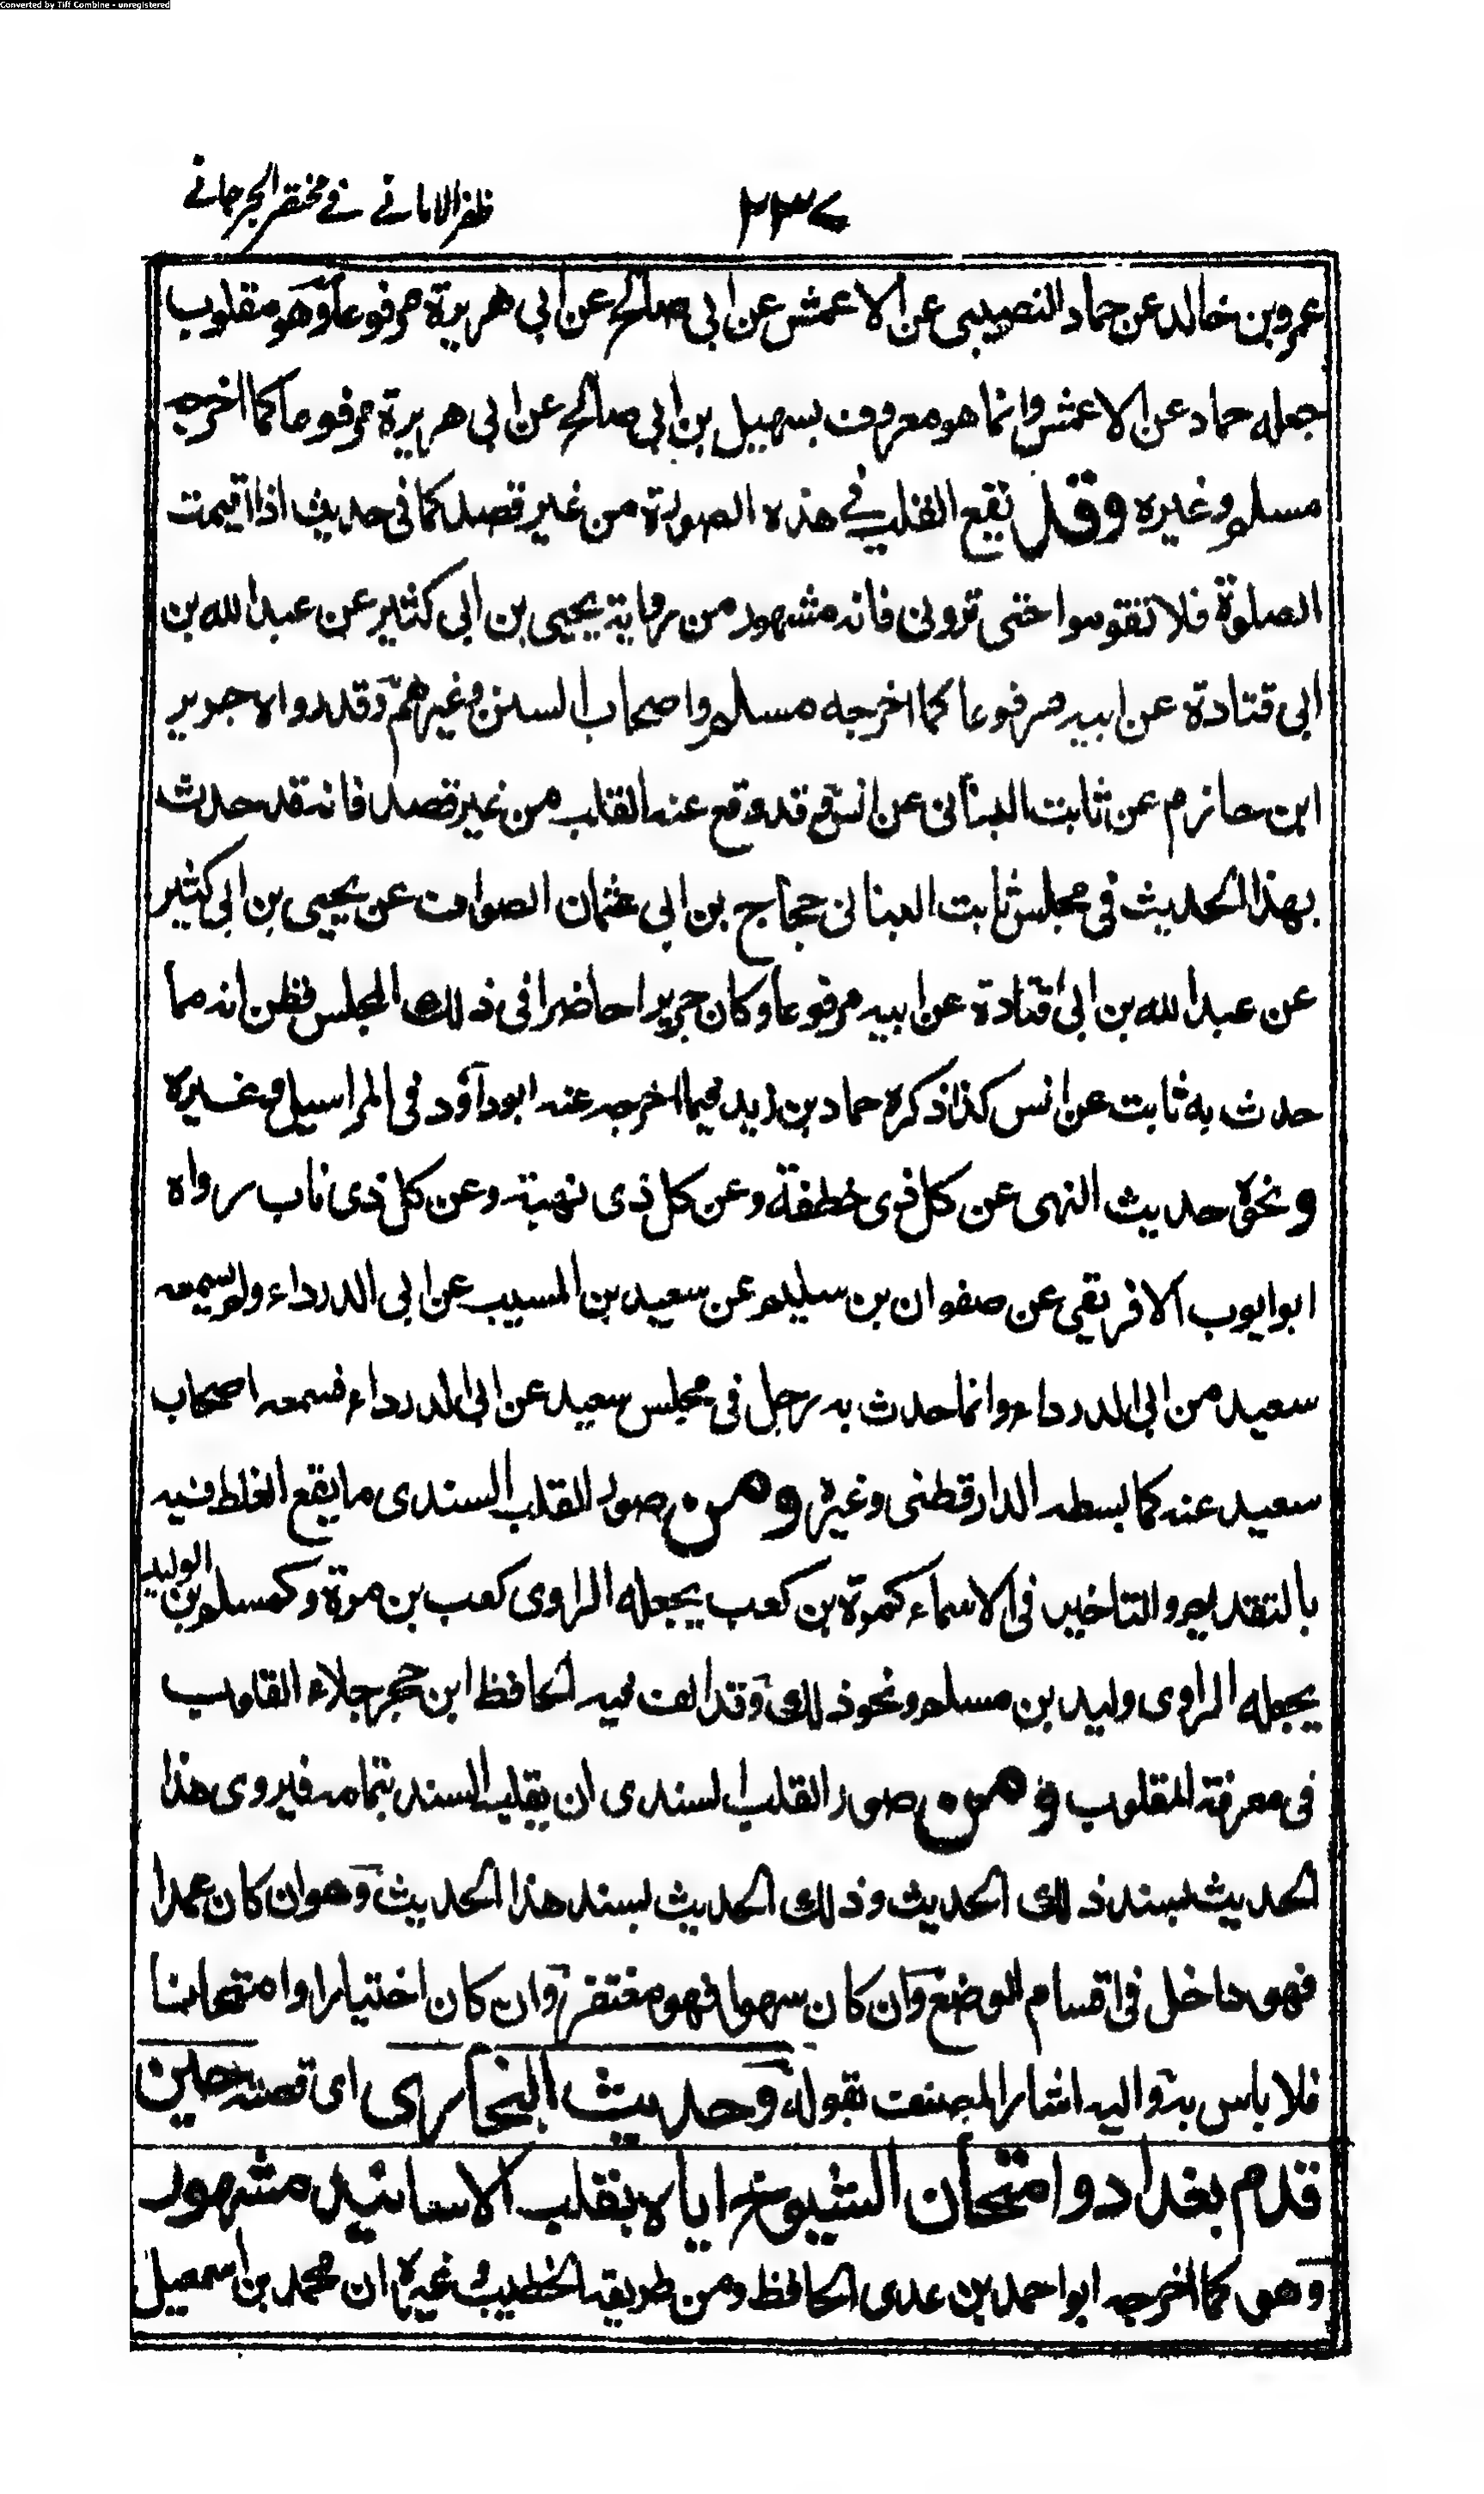 Converted by Tiff Combine - unregistered
ظفر الامانے فے مختصر الجرجانے
٢٣٧
عمرو بن خالد عن حماد النصيبى عن الاعمش عن ابى صالح عن ابى هريرة مرفوعا وهو مقلوب
جعله حماد عن الاعمش وانما هو معروف بسهيل بن ابى صالح عن ابى هريرة مرفوعا كما اخرجه
مسلم وغيره وقد يقع القلب فے هذه الصورة من غير قصد كما فى حديث اذا اقيمت
الصلوة فلا تقوموا حتى ترونى فانه مشهور من رواية يحيى بن ابى كثير عن عبد الله بن
ابى قتادة عن ابيه مرفوعا كما اخرجه مسلم واصحاب السنن وغيرهم وقد رواه جرير
ابن حازم عن ثابت البنانى عن انس وقد وقع عنه القلب من غير قصد فانه قد حدث
بهذا الحديث فى مجلس ثابت البنانى حجاج بن ابى عثمان الصواف عن يحيى بن ابى كثير
عن عبد الله بن ابى قتادة عن ابيه مرفوعا وكان جرير حاضرا فى ذلك المجلس فظن انه مما
حدث به ثابت عن انس كذا ذكره حماد بن زيد فيما اخرجه عنه ابوداؤد فى المراسيل وغيره
ونحوه حديث النهى عن كل ذى خطفة وعن كل ذى نهبة وعن كل ذى ناب رواه
ابو ايوب الافريقى عن صفوان بن سليم عن سعيد بن المسيب عن ابى الدرداء ولم يسمعه
سعيد من ابى الدرداء وانما حدث به رجل فى مجلس سعيد عن ابى الدرداء فسمعه اصحاب
سعيد عنه كما بسطه الدارقطنى وغيره ومن صور القلب السندى ما يقع الغلط فيه
بالتقديم والتاخير فى الاسماء كمرة بن كعب يجعله الراوى كعب بن مرة وكمسلم بن الوليد
يجعله الراوى وليد بن مسلم ونحو ذلك وقد الف فيه الحافظ ابن حجر جلاء القلوب
فى معرفة المقلوب ومن صور القلب السندى ان يقلب السند بتمامه فيروى هذا
الحديث بسند ذلك الحديث وذلك الحديث بسند هذا الحديث وهو ان كان عمدا
فهو داخل فى اقسام الوضع وان كان سهوا فهو مغتفر وان كان اختبارا وامتحانا
فلا باس به واليه اشار المصنف بقوله وحديث البخارى اى قصته حين
قدم بغداد وامتحان الشيوخ اياه بقلب الاسانيد مشهور
وهو كما اخرجه ابو احمد بن عدى الحافظ ومن طريقه الخطيب وغيره ان محمد بن اسمعيل